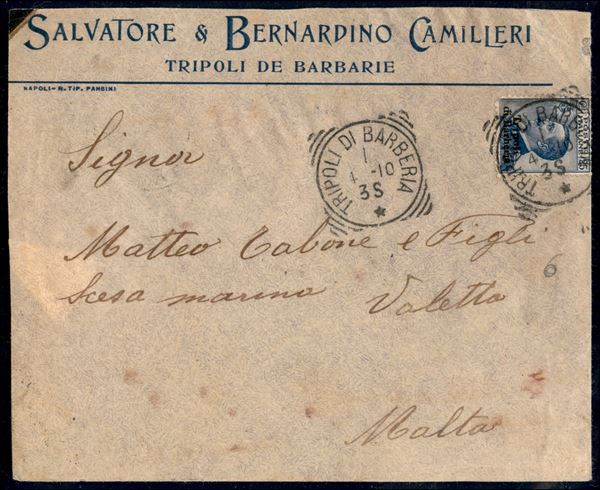 SALVATORE & BERNARDINO CAMILLERI
TRIPOLI DE BARBARIE
NAPOLI-R. TIP. PANSINI
TRIPOLI DI BARBERIA
1
4 -10
3S
Signor
Matteo Cabone e Figli
Scesa marina Valetta
6
Malta